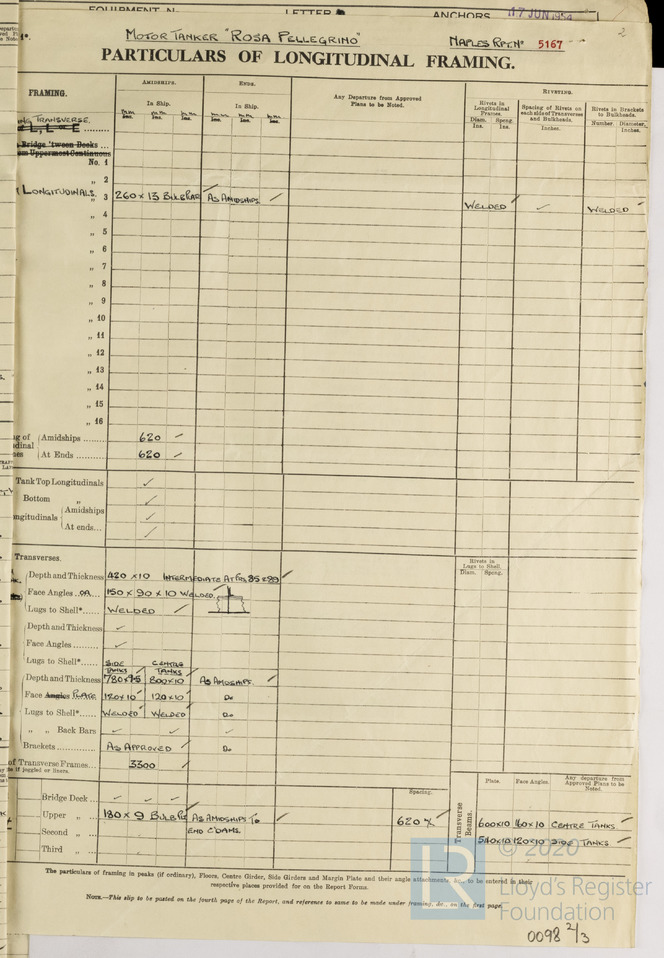 EQUIPMENT N.
LETTER
ANCHORS
17 JUN 1954
MOTOR TANKER "ROSA PELLEGRINO"
NAPLES RPT. No 5167
2
PARTICULARS OF LONGITUDINAL FRAMING.
FRAMING.
AMIDSHIPS.
ENDS.
Any Departure from Approved Plans to be Noted.
RIVETING.
In Ship.
In Ship.
Rivets in Longitudinal Frames.
Spacing of Rivets on each side of Transverses and Bulkheads.
Rivets in Brackets to Bulkheads.
Diam. Ins.
Spcng. Ins.
Inches.
Number.
Diameter, Inches.
TRANSVERSE
Bridge 'tween Decks ...
om Uppermost Continuous
No. 1
„ 2
LONGITUDINALS. „ 3 260 x 13 BULB BAR AS AMIDSHIPS ✓
WELDED ✓ WELDED
„ 4
„ 5
„ 6
„ 7
„ 8
„ 9
„ 10
„ 11
„ 12
„ 13
„ 14
„ 15
„ 16
g of Amidships ........ 620 ✓
dinal
nes At Ends ........ 620 ✓
Tank Top Longitudinals ✓
Bottom „ ✓
ngitudinals Amidships ✓
At ends... ✓
Transverses.
Rivets in Lugs to Shell.
Diam. Spcng.
Depth and Thickness 420 x 10 INTERMEDIATE AT FRS 85 & 89 ✓
Face Angles OR 150 x 90 x 10 WELDED
Lugs to Shell*...... WELDED ✓
Depth and Thickness ✓
Face Angles ........ ✓
Lugs to Shell*...... SIDE TANKS CENTRE TANKS
Depth and Thickness 800x10 AS AMIDSHIPS. ✓
Face Angles PLATE 120x10 120x10 Do
Lugs to Shell*...... WELDED WELDED Do
„ „ Back Bars ✓ ✓ ✓
Brackets ............ AS APPROVED ✓ Do
of Transverse Frames... 3300 ✓
if joggled or liners.
Spacing.
Transverse Beams.
Plate.
Face Angles.
Any departure from Approved Plans to be Noted.
Bridge Deck ... ✓ ✓ ✓
Upper „ ... 180 x 9 AS AMIDSHIPS TO ✓ 620
END C'DAMS.
Second „ ...
Third „ ...
600x10 CENTRE TANKS
120x10 SIDE TANKS ✓
The particulars of framing in peaks (if ordinary), Floors, Centre Girder, Side Girders and Margin Plate and their angle attachments, &c., to be entered in their
respective places provided for on the Report Forms.
NOTE.—This slip to be pasted on the fourth page of the Report, and reference to same to be made under framing, &c., on the first page.
© 2020
LR
Lloyd's Register
Foundation
0098 2/3